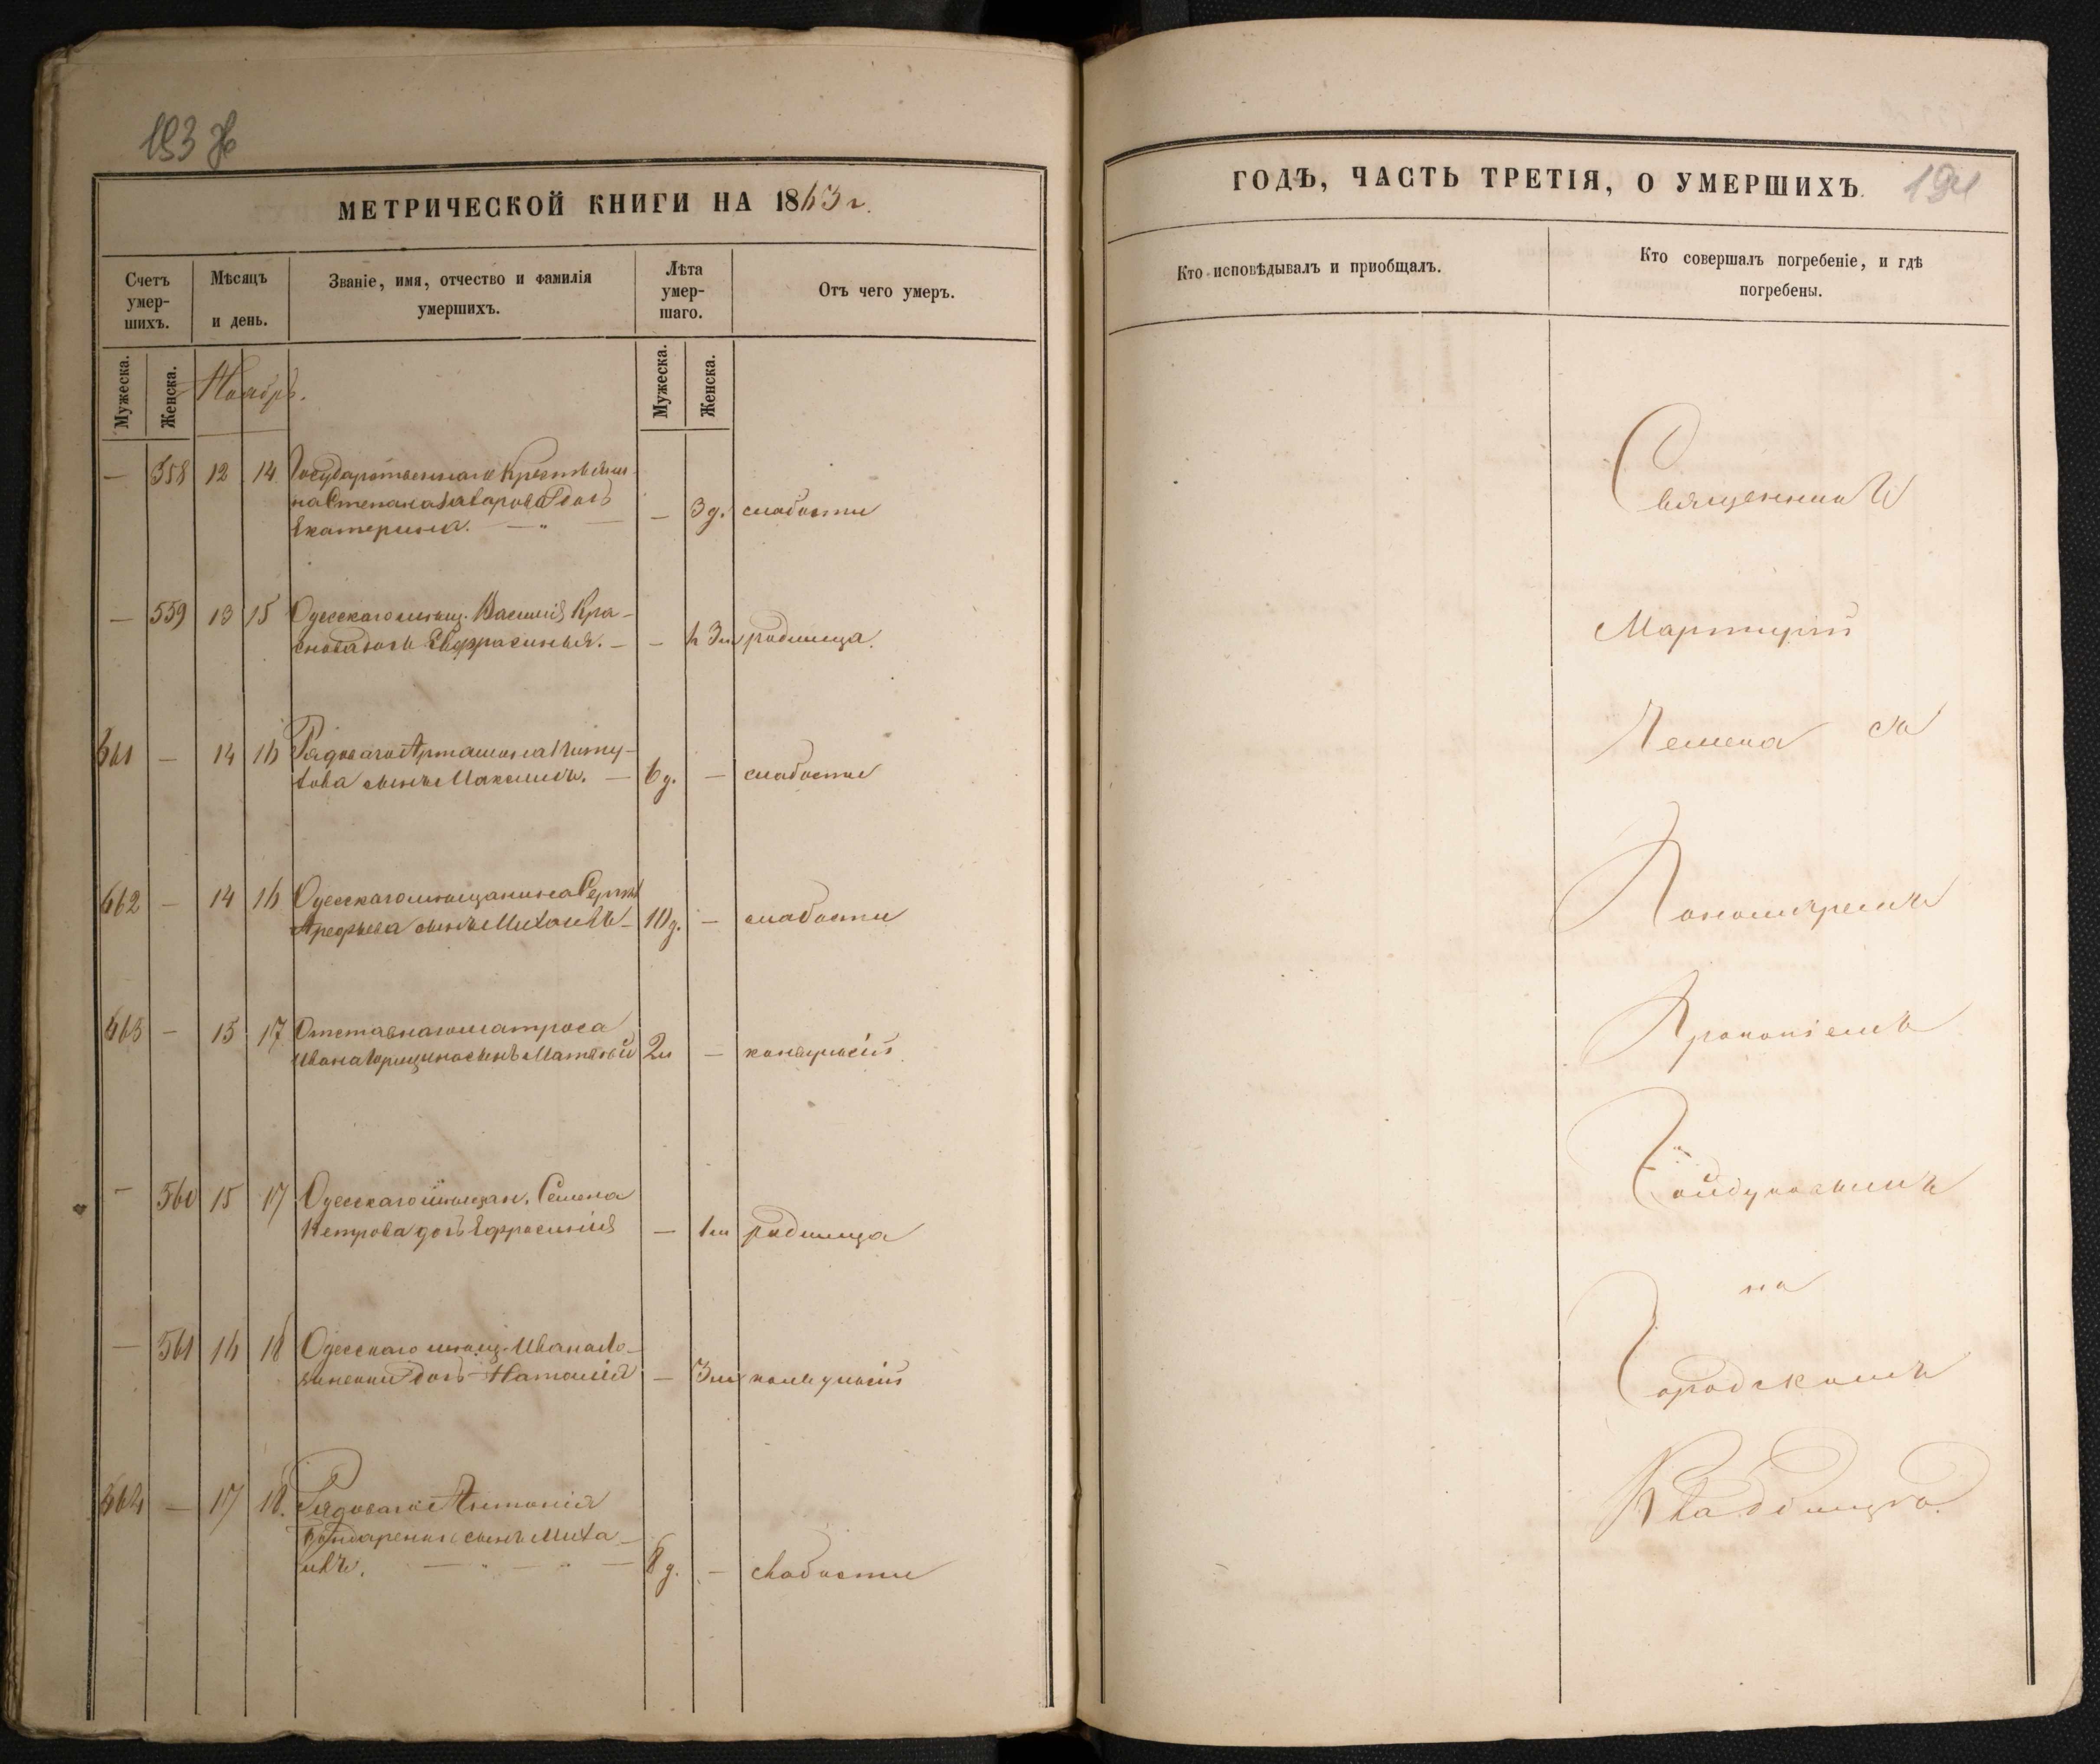 193 Ж
МЕТРИЧЕСКОЙ КНИГИ НА 1863 г.
Счетъ умер-шихъ.
Мѣсяцъ и день.
Званіе, имя, отчество и фамилія умершихъ.
Лѣта умер-шаго.
Отъ чего умеръ.
Мужеска.
Женска.
Мужеска.
Женска.
Ноябрь.
— 558 12 14 Государственнаго Крестьяни-
на Степана Захарова дочь
Екатерина. — 3 д. слабости
— 559 13 15 Одесскаго мѣщ. Василія Кра-
снова дочь Евфрасинья. — — 3 м родимца.
661 — 14 16 Рядоваго
сынъ Максимъ. — 6 д. — слабости
662 — 14 16 Одесскаго мѣщанина Сергѣя
Арефьева сынъ Михаилъ — 10 д. — слабости
663 — 15 17 Отставнаго матроса
Ивана сынъ Матвѣй 2 м — конвульсій
— 560 15 17 Одесскаго мѣщан. Семена
Петрова дочь Ефросинія — 1 м родимца
— 561 16 18 Одесскаго мѣщ. Ивана
дочь Наталія — 3 м конвульсій
664 — 17 18. Рядоваго Антонія
Бондаренка сынъ Миха-
илъ. — 8 д. — слабости
ГОДЪ, ЧАСТЬ ТРЕТІЯ, О УМЕРШИХЪ.
194
Кто исповѣдывалъ и пріобщалъ.
Кто совершалъ погребеніе, и гдѣ
погребены.
Священникъ
Мартирій
Чемена съ
Пономаремъ
Прокопіемъ
на
Городскомъ
Кладбищѣ.